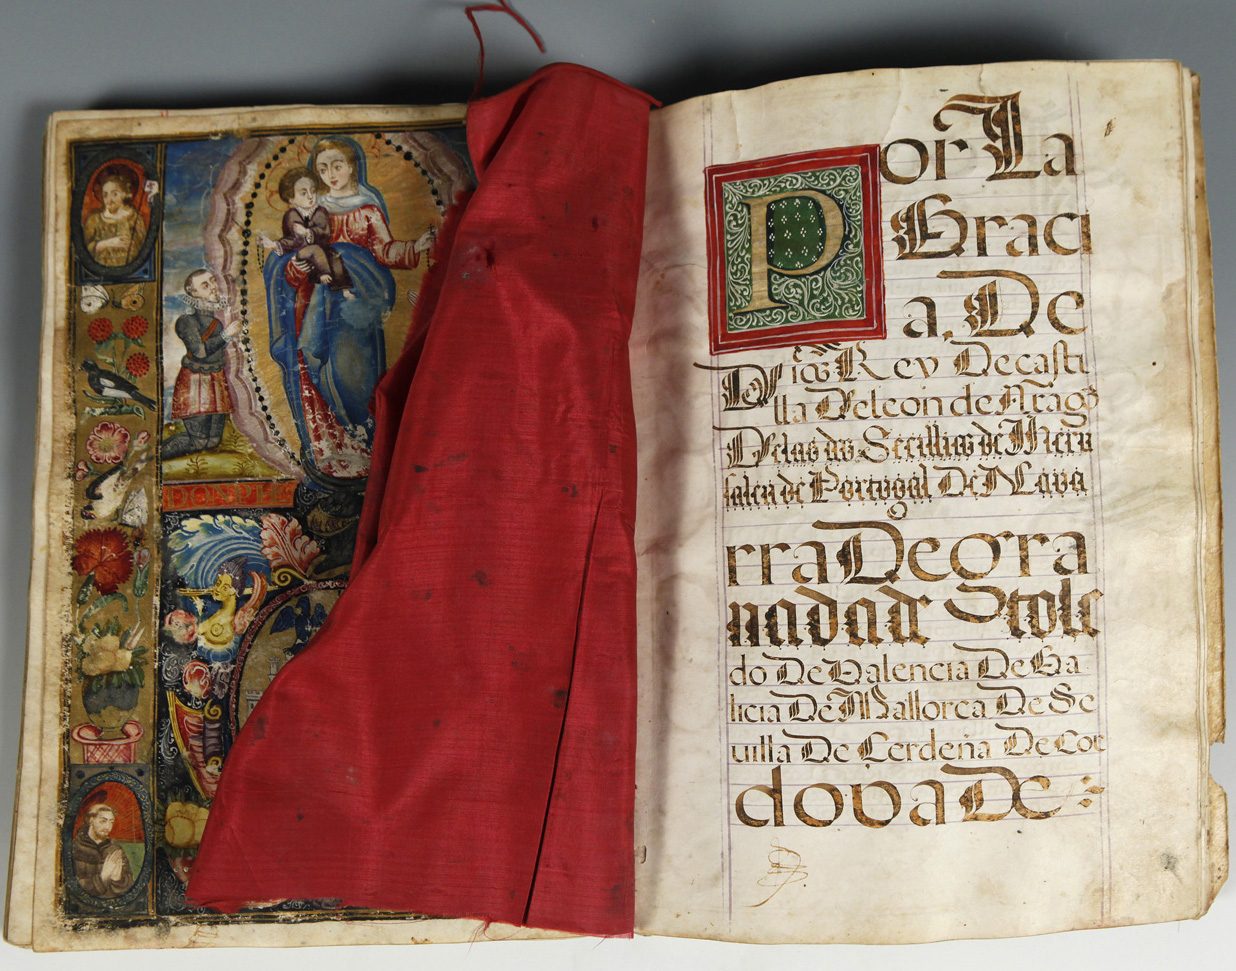 DON PE
Por La
Graci
a, De
Dios Rey De casti
lla De leon de Arago
De las dos Secilias de Iheru
salen de Portugal De Nava
rra De gra
nada de Tole
do De Valencia De Ga
licia De Mallorca De Se
uilla De Cerdeña De Cor
dova De